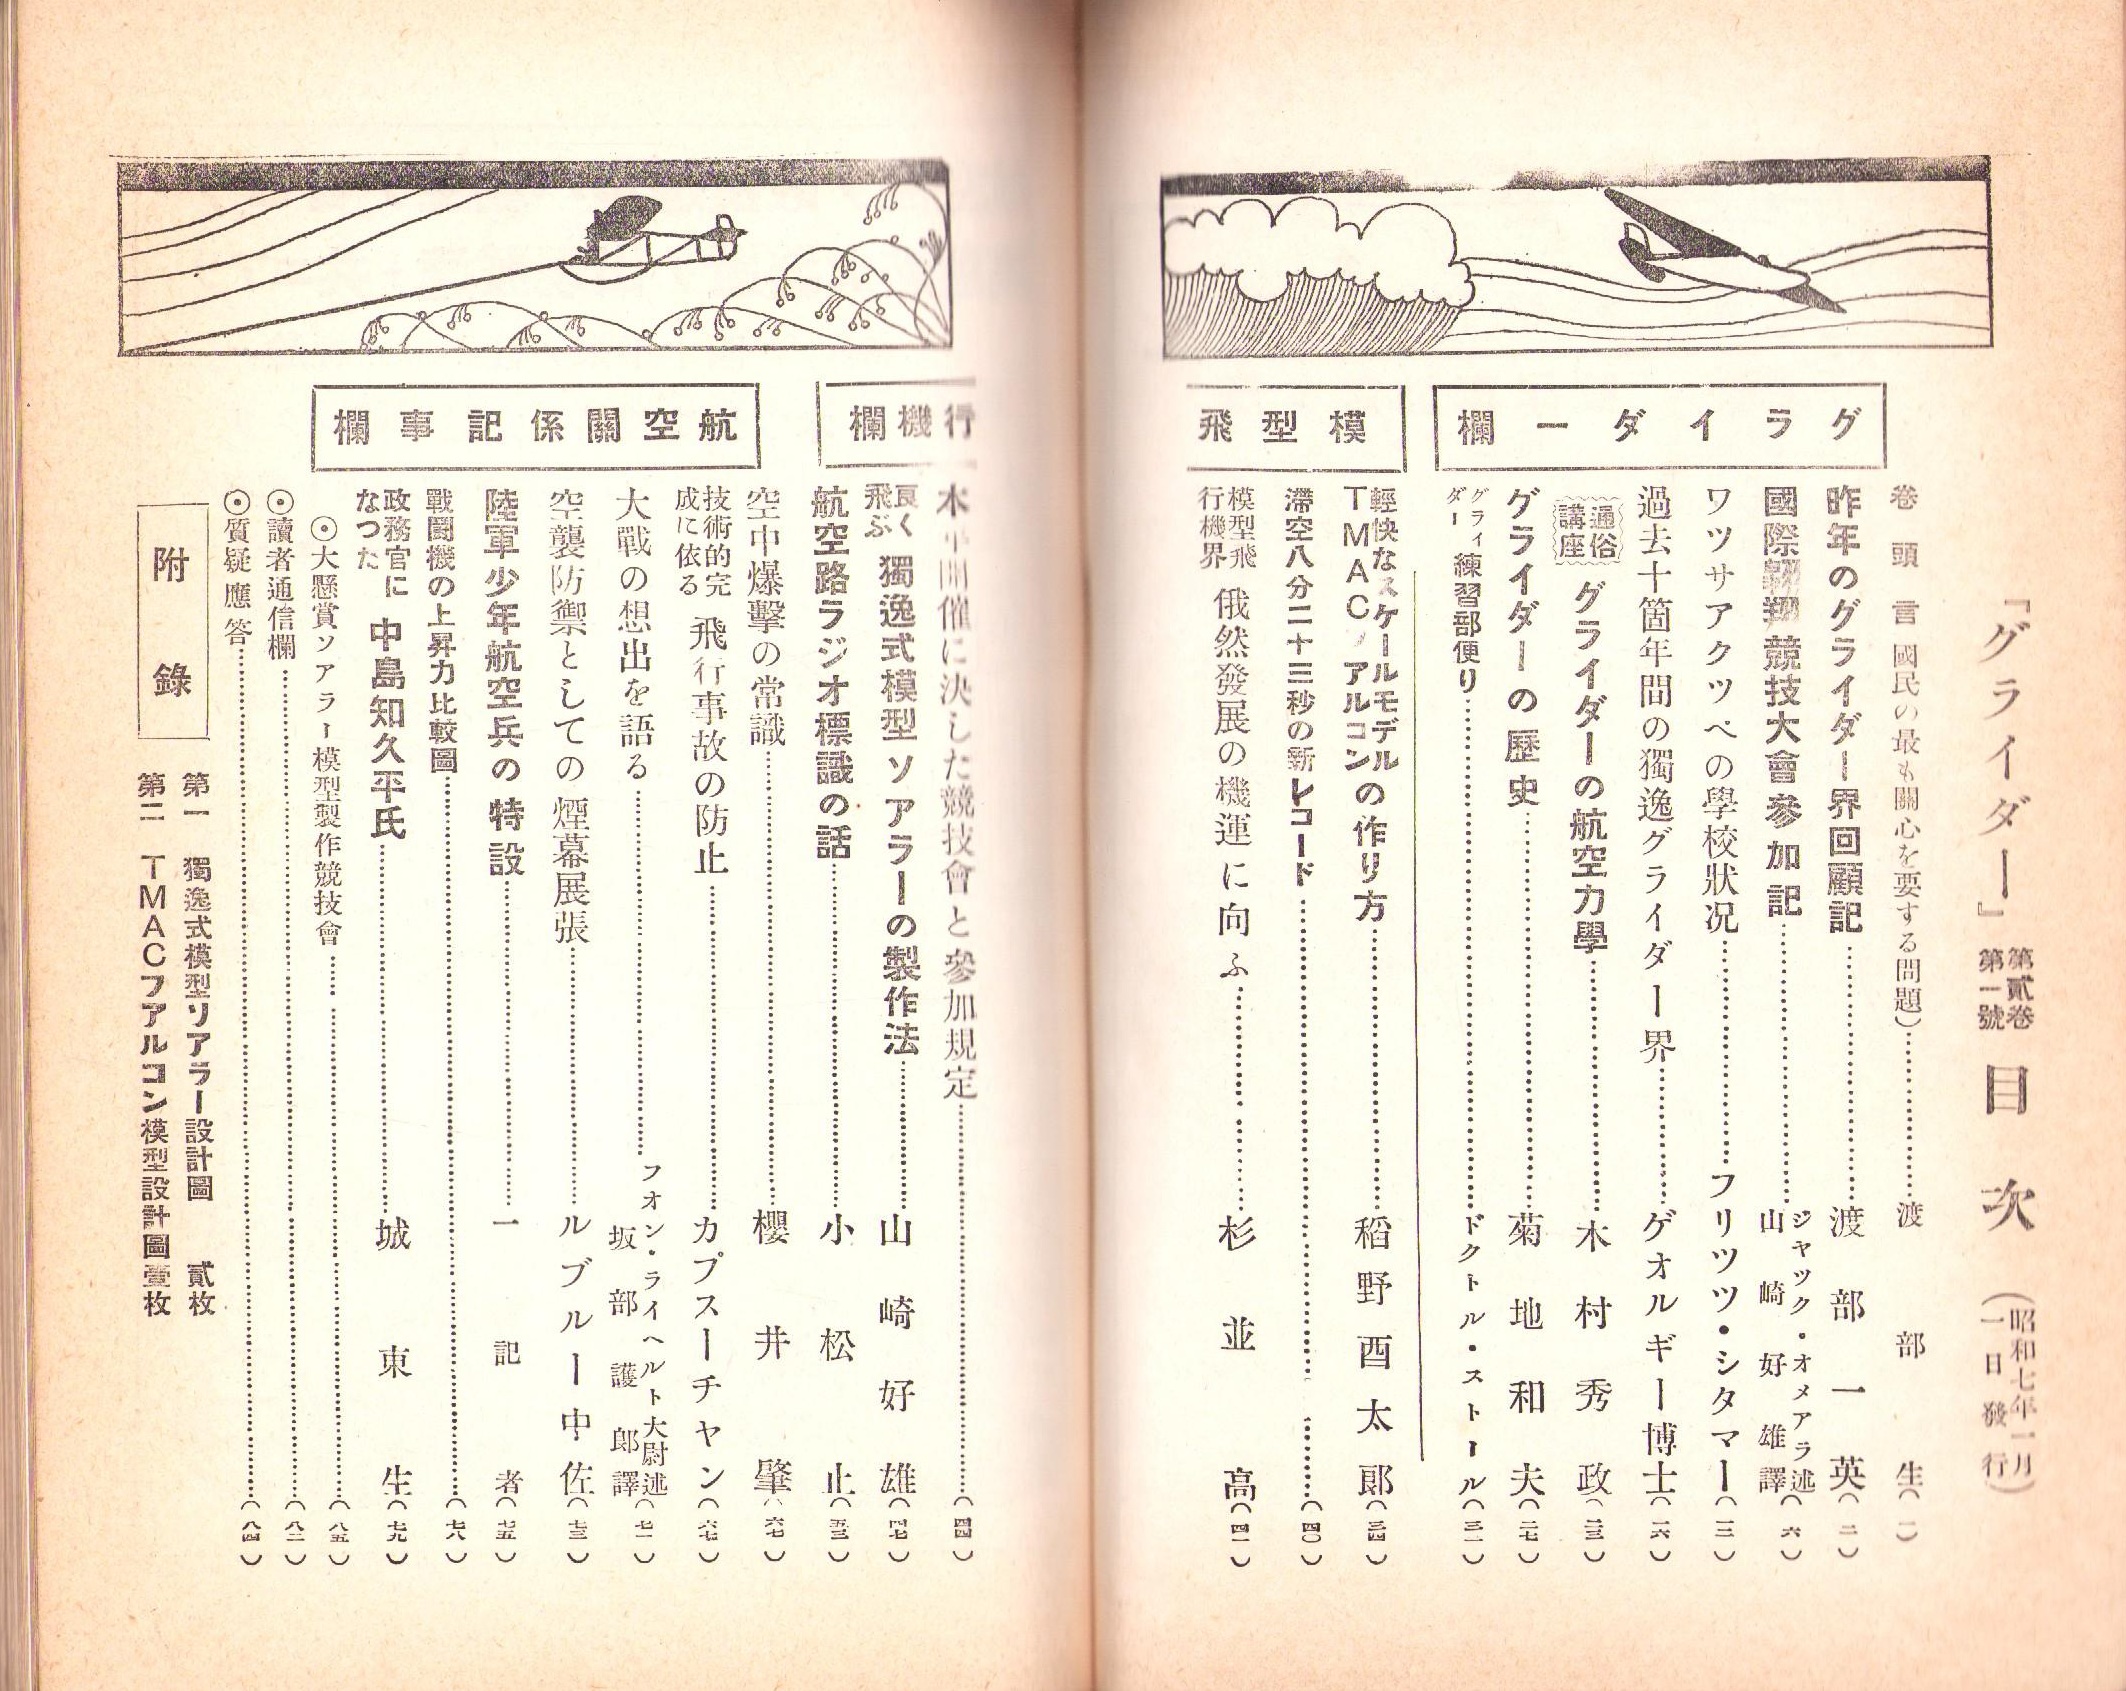 『グライダー』第貳卷第一號 目次 (昭和七年一月一日發行)
卷頭言 國民の最も關心を要する問題)……渡部生(一)
グライダー欄
昨年のグライダー界回顧記……渡部一英(二)
國際翱翔競技大會參加記……ジャック・オメアラ述 山崎好雄譯(六)
ワツサアクツペの學校狀況……フリツツ・シタマー(一三)
過去十箇年間の獨逸グライダー界……ゲオルギー博士(一六)
通俗講座 グライダーの航空力學……木村秀政(二三)
グライダーの歷史……菊地和夫(二七)
グライダー練習部便り……ドクトル・ストール(三一)
模型飛行機欄
輕快なスケールモデルTMACフアルコンの作り方……稻野酉太郞(三四)
滯空八分二十三秒の新レコード……(四〇)
模型飛行機界 俄然發展の機運に向ふ……杉並高(四一)
本年開催に決した競技會と參加規定……(四四)
良く飛ぶ 獨逸式模型ソアラーの製作法……山崎好雄(四七)
航空路ラジオ標識の話……小松止(五三)
航空關係記事欄
空中爆擊の常識……櫻井肇(六七)
技術的完成に依る 飛行事故の防止……カプスーチヤン(六七)
大戰の想出を語る……フオン・ライヘルト大尉述 坂部護郎譯(七一)
空襲防禦としての煙幕展張……ルブルー中佐(七三)
陸軍少年航空兵の特設……一記者(七五)
戰鬪機の上昇力比較圖……(七八)
政務官になつた 中島知久平氏……城東生(七九)
⊙大懸賞ソアラー模型製作競技會……(八五)
⊙讀者通信欄……(八二)
⊙質疑應答……(八四)
附錄
第一 獨逸式模型リアラー設計圖 貳枚
第二 TMACフアルコン模型設計圖壹枚